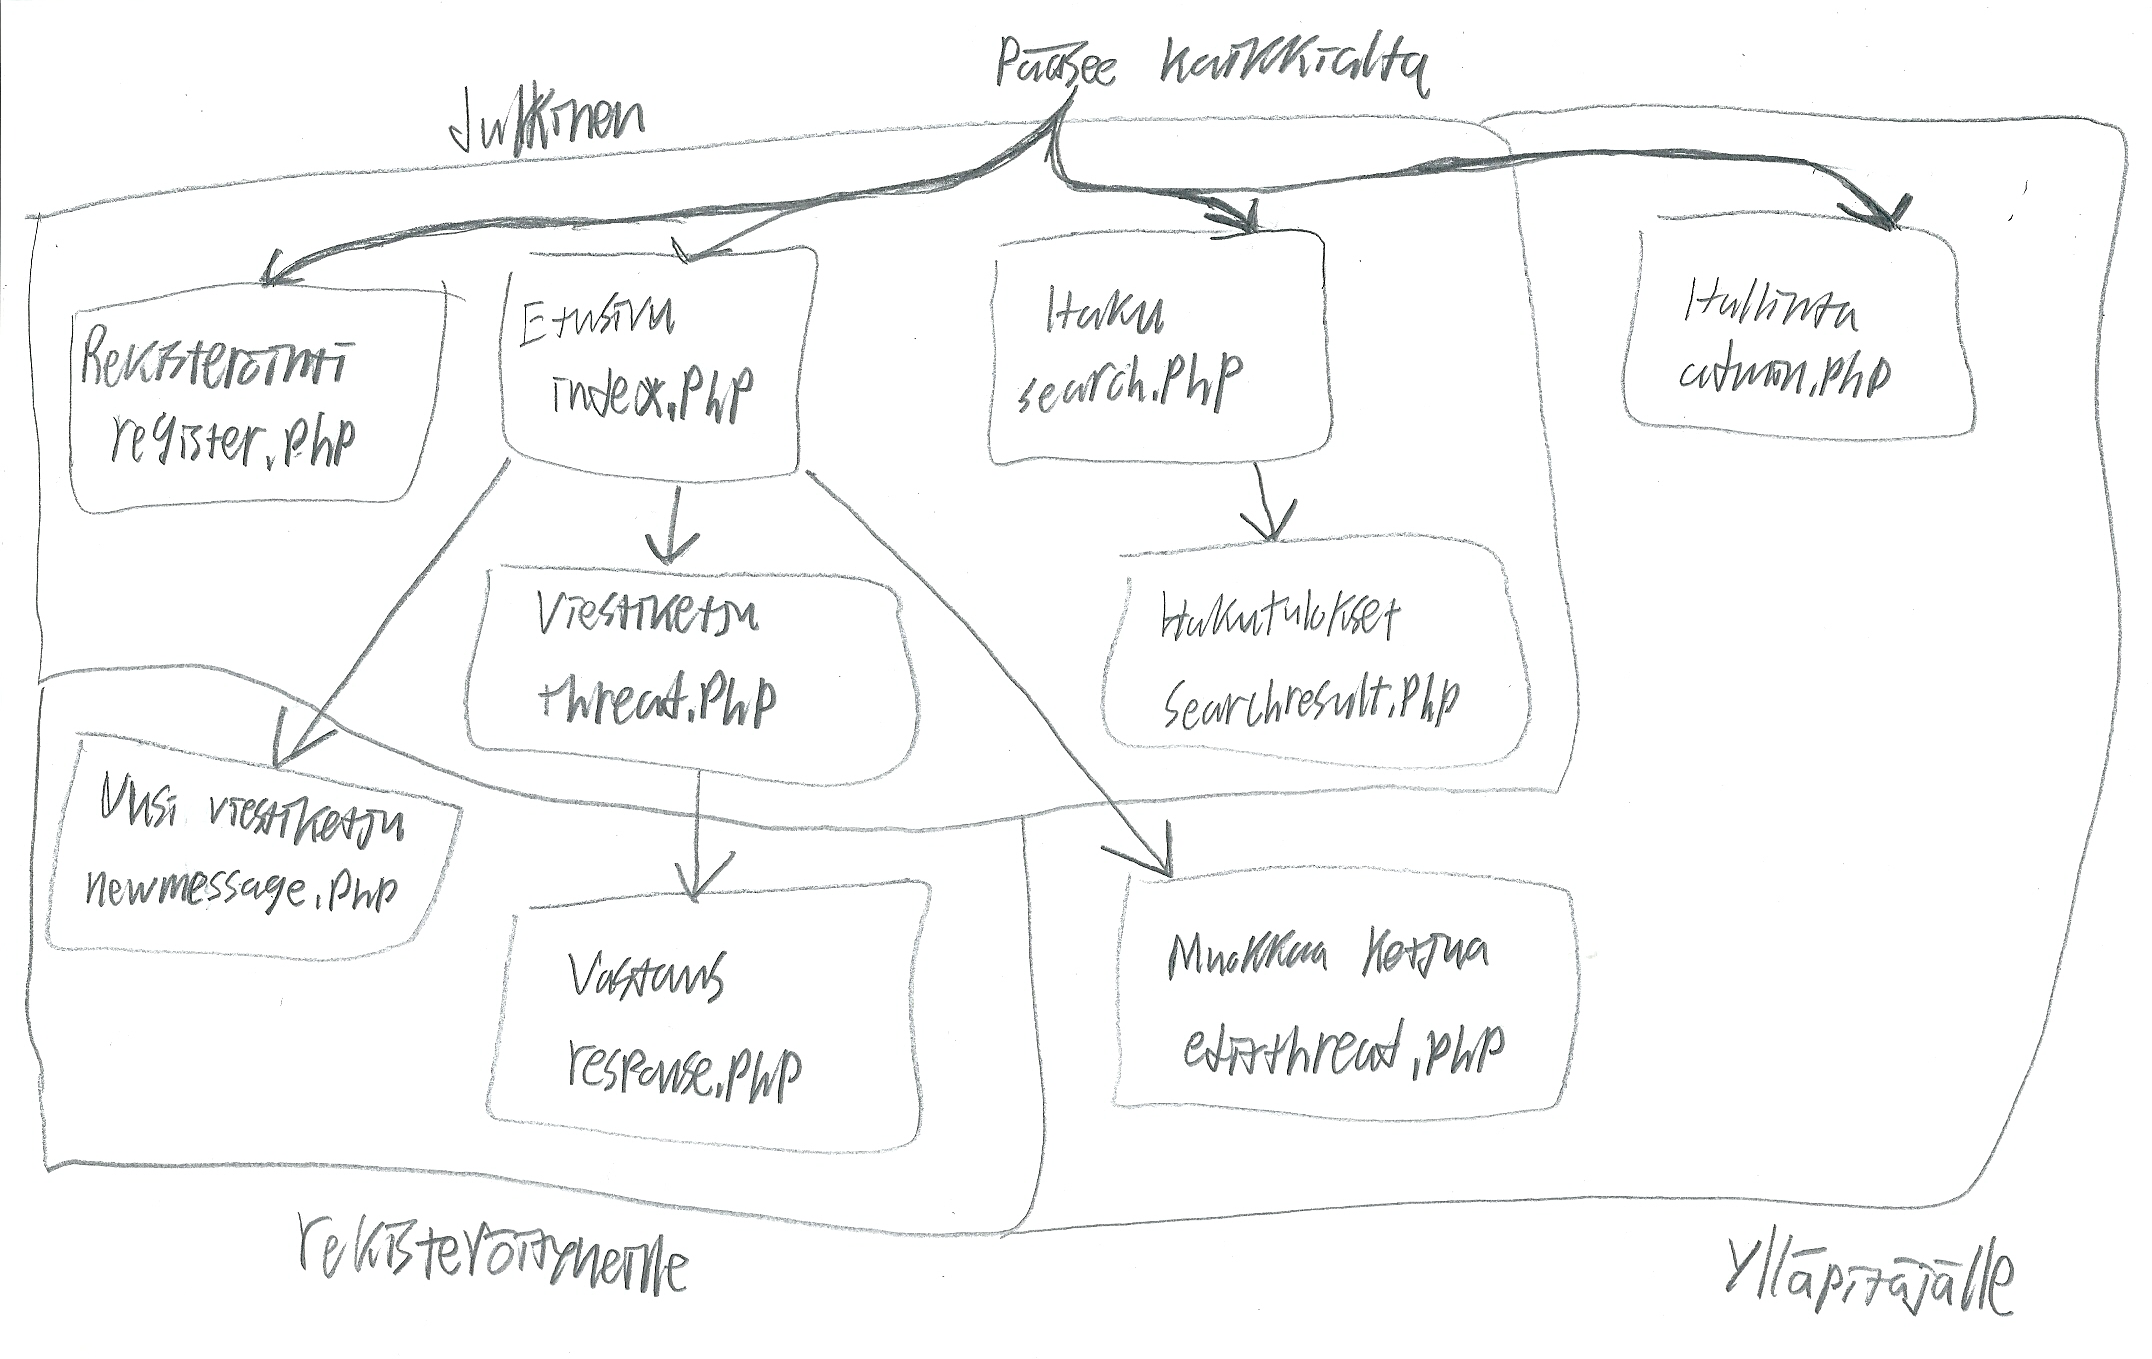 Pääsee kaikkialta
Julkinen
Rekisteröinti
register.php
Etusivu
index.php
Haku
search.php
Hallinta
admin.php
Viestiketju
thread.php
Hakutulokset
searchresult.php
Uusi viestiketju
newmessage.php
Vastaus
response.php
Muokkaa ketjua
editthread.php
rekisteröityneille
Ylläpitäjälle